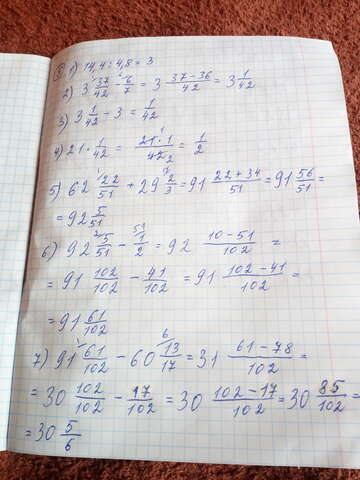 5) 1) 14,4 : 4,8 = 3
2) 3 37/42 - 6/7 = 3 37-36/42 = 3 1/42
3) 3 1/42 - 3 = 1/42
4) 21 · 1/42 = 21·1/42 = 1/2
5) 62 22/51 + 29 2/3 = 91 22+34/51 = 91 56/51 =
= 92 5/51
6) 92 5/51 - 1/2 = 92 10-51/102 =
= 91 102/102 - 41/102 = 91 102-41/102 =
= 91 61/102
7) 91 61/102 - 60 13/17 = 31 61-78/102 =
= 30 102/102 - 17/102 = 30 102-17/102 = 30 85/102 =
= 30 5/6